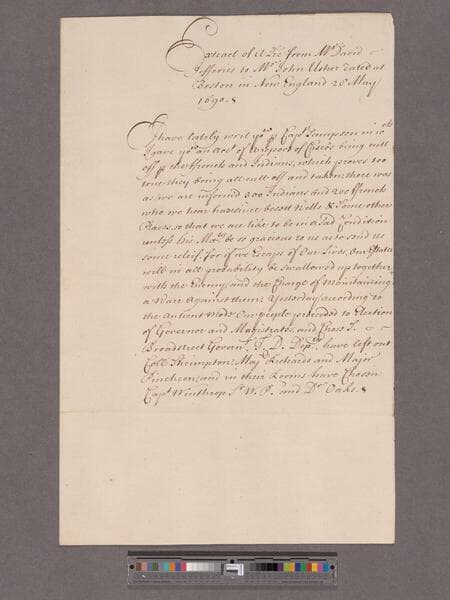 Extract of a Lre from Mr David
Jefferies to Mr John Usher dated at
Boston in New England 28 May
1690.
I have lately writ yow p Capt Sampson in wch
I gave yow an Acct of a report of Casco being cutt
off p the ffrench and Indians, which proves too
true they being all cutt off and taken, there was
as we are informd 300 Indians and 200 ffrench
who we hear have since besett Wells & Some other
Places, so that we are like to be in a Sad Condition
unless his Maty be so gracious to us as to send us
some relief. for if we Escape of Our Lives, Our Estates
will in all probability be Swallowed up together
with the Enemy, and the Charge of Maintaineing
a Warr against them; Yesterday according to
the Antient Mode Our people proceeded to Election
of Governor and Magistrates, and Chose S.
Broadstreet Governr. T. D. Depty. have left out
Coll Shrimpton; Majr Richards and Major
Pincheon; and in their Rooms have Chosen
Capt Winthrop Sr W. P. and Dr Oakes.